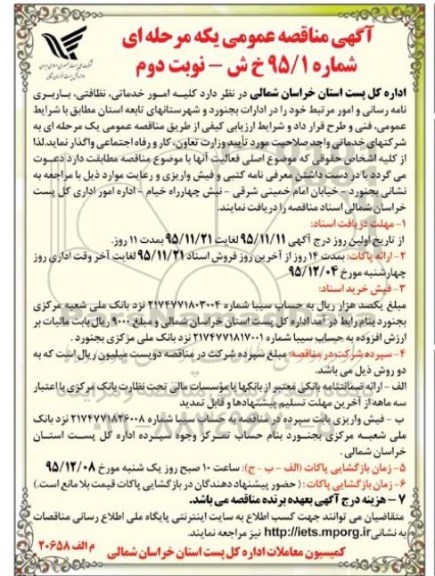 آگهی مناقصه عمومی یکه مرحله ای
شماره ۹۵/۱ خ ش - نوبت دوم
اداره کل پست استان خراسان شمالی در نظر دارد کلیه امور خدماتی، نظافتی، باربری
نامه رسانی و امور مرتبط خود را در ادارات بجنورد و شهرستانهای تابعه استان مطابق با شرایط
عمومی، فنی و طرح قرار داد و شرایط ارزیابی کیفی از طریق مناقصه عمومی یک مرحله ای به
شرکتهای خدماتی واجد صلاحیت مورد تأیید وزارت تعاون، کار و رفاه اجتماعی واگذار نماید. لذا
از کلیه اشخاص حقوقی که موضوع اصلی فعالیت آنها با موضوع مناقصه مطابقت دارد دعوت
می گردد با در دست داشتن معرفی نامه کتبی و فیش واریزی و رعایت موارد ذیل با مراجعه به
نشانی بجنورد - خیابان امام خمینی شرقی - نبش چهارراه خیام - اداره امور اداری کل پست
خراسان شمالی اسناد مناقصه را دریافت نمایند.
۱- مهلت دریافت اسناد:
از تاریخ اولین روز درج آگهی ۹۵/۱۱/۱۱ لغایت ۹۵/۱۱/۲۱ بمدت ۱۱ روز.
۲- ارائه پاکات: بمدت ۱۴ روز از آخرین روز فروش اسناد ۹۵/۱۱/۲۱ لغایت آخر وقت اداری روز
چهارشنبه مورخ ۹۵/۱۲/۰۴
۳- فیش خرید اسناد:
مبلغ یکصد هزار ریال به حساب سیبا شماره ۲۱۷۴۷۷۱۸۰۳۰۰۴ نزد بانک ملی شعبه مرکزی
بجنورد بنام رابط در آمد اداره کل پست استان خراسان شمالی و مبلغ ۹۰۰۰ ریال بابت مالیات بر
ارزش افزوده به حساب سیبا شماره ۲۱۷۴۷۷۱۸۱۷۰۰۱ نزد بانک ملی مرکزی بجنورد.
۴- سپرده شرکت در مناقصه: مبلغ سپرده شرکت در مناقصه دویست میلیون ریال است که به
دو روش ذیل می باشد.
الف - ارائه ضمانتنامه بانکی معتبر از بانکها یا مؤسسات مالی تحت نظارت بانک مرکزی با اعتبار
سه ماهه از آخرین مهلت تسلیم پیشنهادها و قابل تمدید
ب - فیش واریزی بابت سپرده در مناقصه به حساب سیبا شماره ۲۱۷۴۷۷۱۸۲۶۰۰۸ نزد بانک
ملی شعبه مرکزی بجنورد بنام حساب تمرکز وجوه سپرده اداره کل پست استان
خراسان شمالی.
۵- زمان بازگشایی پاکات (الف - ب - ج): ساعت ۱۰ صبح روز یک شنبه مورخ ۹۵/۱۲/۰۸
۶- زمان بازگشایی پاکات: (حضور پیشنهاد دهندگان در بازگشایی پاکات قیمت بلا مانع است.)
۷- هزینه درج آگهی بعهده برنده مناقصه می باشد.
متقاضیان می توانند جهت کسب اطلاع به سایت اینترنتی پایگاه ملی اطلاع رسانی مناقصات
به نشانی http://iets.mporg.ir نیز مراجعه نمایند.
م الف ۲۰۶۵۸
کمیسیون معاملات اداره کل پست استان خراسان شمالی